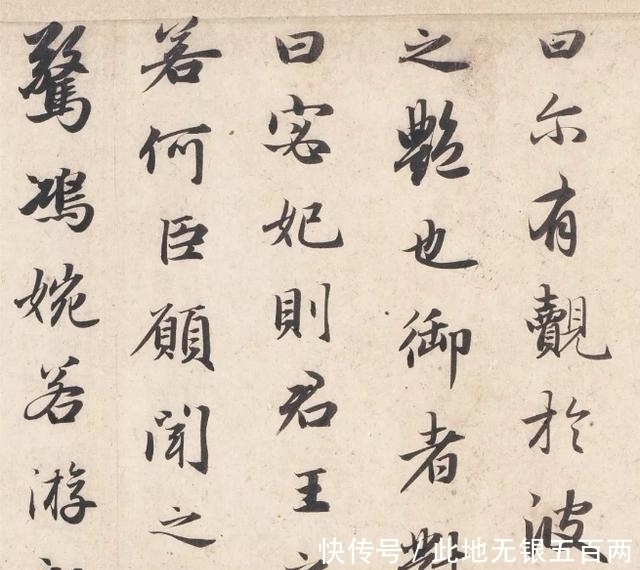 曰尔有觌於彼
之艷也御者對
曰宓妃則君王之
若何臣願聞之
驚鴻婉若游
快传号/此地无银五百两